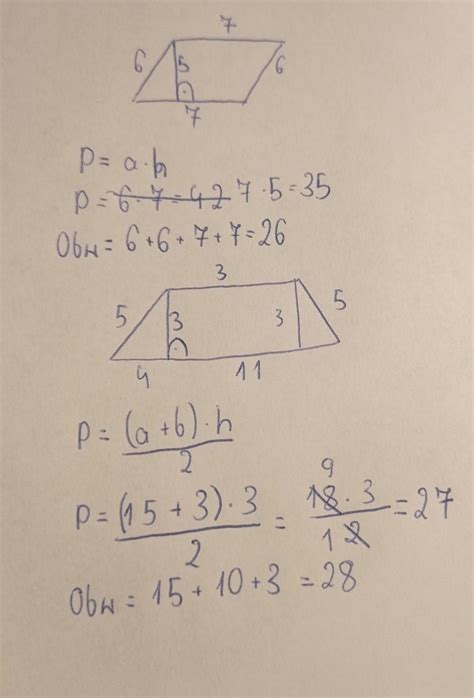 7
6 5 6
7
P = a·h
P = ~~6·7=42~~ 7·5=35
Obw = 6+6+7+7=26
3
5 3 3 5
4 11
P = (a+b)·h / 2
P = (15+3)·3 / 2 = 9 ~~18~~·3 / 1 ~~2~~ = 27
Obw = 15+10+3 = 28